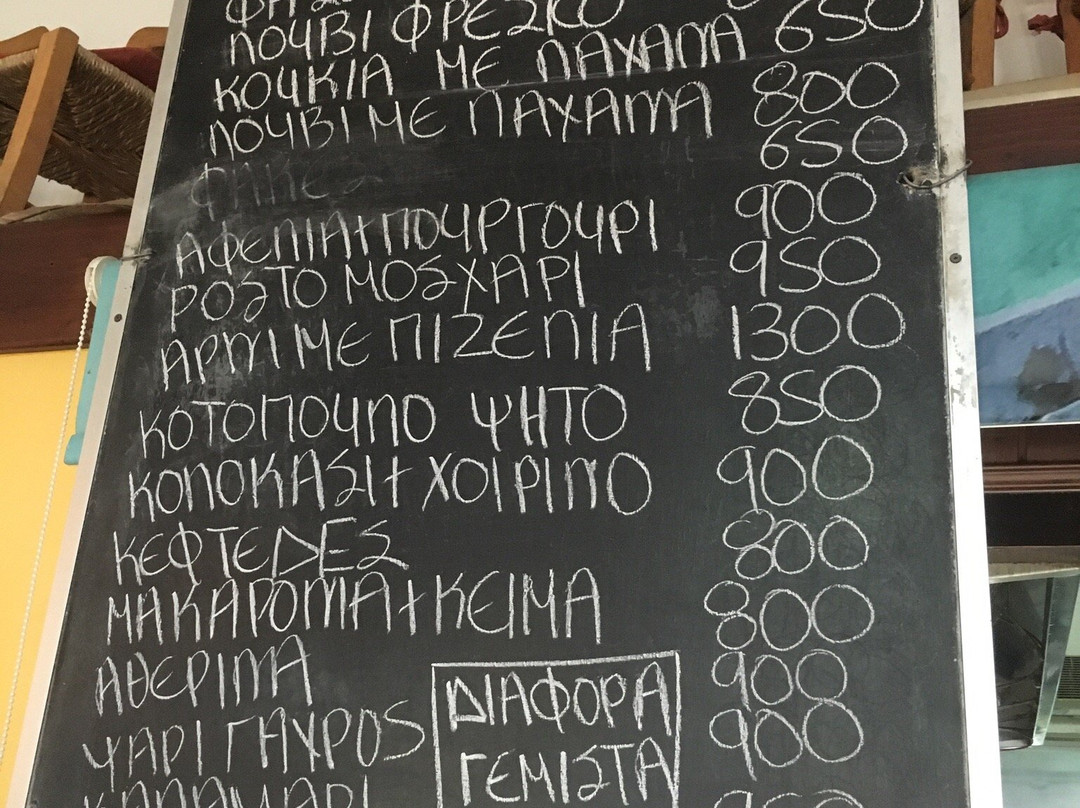 ΛΟΥΒΙ ΦΡΕΣΚΟ 650
ΚΟΥΚΙΑ ΜΕ ΛΑΧΑΝΑ 800
ΛΟΥΒΙ ΜΕ ΛΑΧΑΝΑ 650
ΦΑΚΕΣ
ΑΦΕΛΙΑ + ΠΟΥΡΓΟΥΡΙ 900
ΡΟΣΤΟ ΜΟΣΧΑΡΙ 950
ΑΡΝΙ ΜΕ ΠΙΖΕΛΙΑ 1300
ΚΟΤΟΠΟΥΛΟ ΨΗΤΟ 850
ΚΟΛΟΚΑΣΙ + ΧΟΙΡΙΝΟ 900
ΚΕΦΤΕΔΕΣ 800
ΜΑΚΑΡΟΝΙΑ + ΚΕΙΜΑ 800
ΑΘΕΡΙΝΑ 900
ΨΑΡΙ ΓΑΥΡΟΣ 900
ΚΑΛΑΜΑΡΙ
ΔΙΑΦΟΡΑ
ΓΕΜΙΣΤΑ